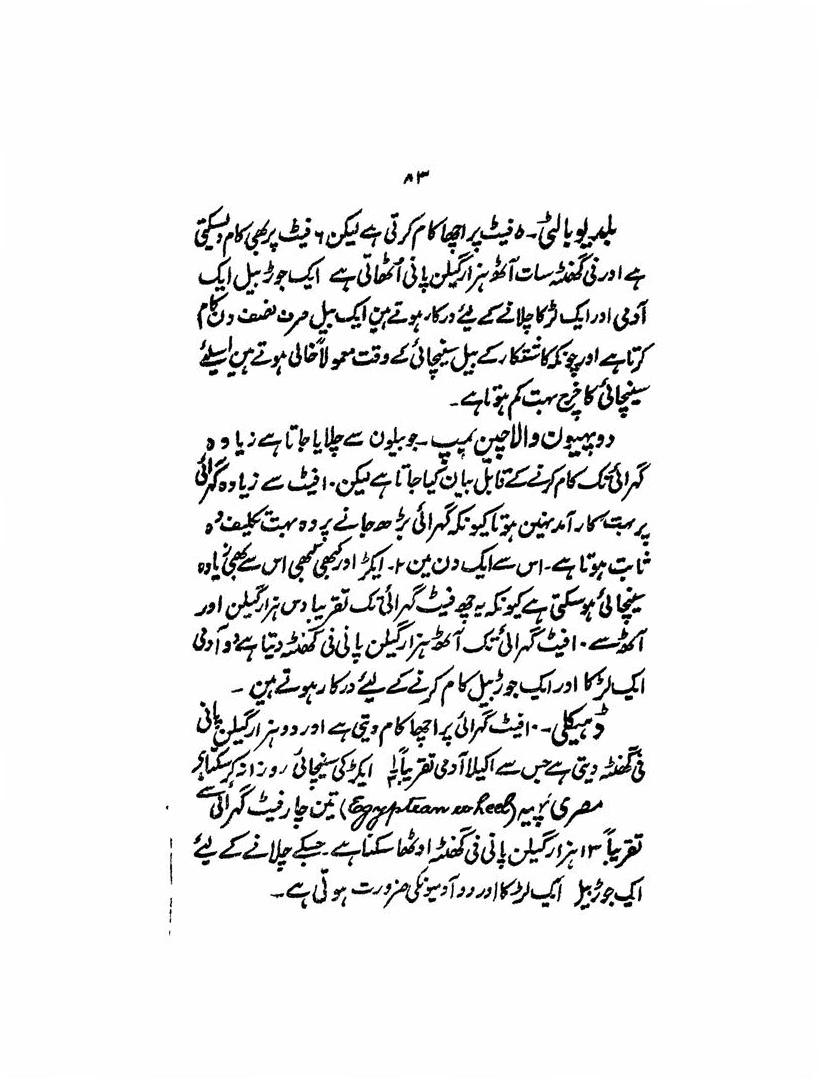 ۸۳
بلدیو بالٹی ۔ ۵ فیٹ پر اچھا کام کرتی ہے لیکن ۶ فیٹ پر بھی کام دیسکتی
ہے اور فی گھنٹہ سات آٹھ ہزار گیلن پانی اُٹھاتی ہے ایک جوڑ بیل ایک
آدمی اور ایک لڑکا چلانے کے لیئے درکار ہوتے ہین ایک بیل صرف نصف دن کام
کرتا ہے اور چونکہ کاشتکار کے بیل سینچائی کے وقت معمولاً خالی ہوتے ہین اسلیئے
سینچائی کا خرچ بہت کم ہوتا ہے ۔
دو پہیون والا چین پمپ ۔ جو بیلون سے چلایا جاتا ہے زیادہ
گہرائی تک کام کرنے کے قابل بیان کیا جاتا ہے لیکن ۱۰ فیٹ سے زیادہ گہرائی
پر بہت کار آمد نہین ہوتا کیونکہ گہرائی بڑھ جانے پر وہ بہت تکلیف دہ
ثابت ہوتا ہے ۔ اس سے ایک دن مین ۲۰ ایکڑ اور کبھی کبھی اس سے بھی زیادہ
سینچائی ہوسکتی ہے کیونکہ یہ چھ فیٹ گہرائی تک تقریباً دس ہزار گیلن اور
آٹھ سے ۱۰ فیٹ گہرائی تک آٹھ ہزار گیلن پانی فی گھنٹہ دیتا ہے دو آدمی
ایک لڑکا اور ایک جوڑ بیل کام کرنے کے لیئے درکار ہوتے ہین ۔
ڈہیکلی ۔ ۱۰ فیٹ گہرائی پر اچھا کام دیتی ہے اور دو ہزار گیلن پانی
فی گھنٹہ دیتی ہے جس سے اکیلا آدمی تقریباً ایکڑ کی سینچائی روزانہ کرسکتا ہے
مصری پہیہ (Egyptean wheel) تین چار فیٹ گہرائی سے
تقریباً ۱۳ ہزار گیلن پانی فی گھنٹہ اوٹھا سکتا ہے ۔ جسکے چلانے کے لیئے
ایک جوڑ بیل ایک لڑکا اور دو آدمیونکی ضرورت ہوتی ہے ۔